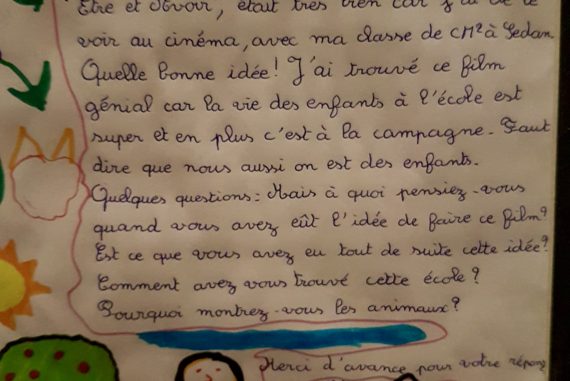 Etre et Avoir, était très bien car j'ai été le
voir au cinéma, avec ma classe de CM2 à Sedan.
Quelle bonne idée! J'ai trouvé ce film
génial car la vie des enfants à l'école est
super et en plus c'est à la campagne. Faut
dire que nous aussi on est des enfants.
Quelques questions: Mais à quoi pensiez-vous
quand vous avez eût l'idée de faire ce film?
Est ce que vous avez eu tout de suite cette idée?
Comment avez vous trouvé cette école?
Pourquoi montrez-vous les animaux?
Merci d'avance pour votre